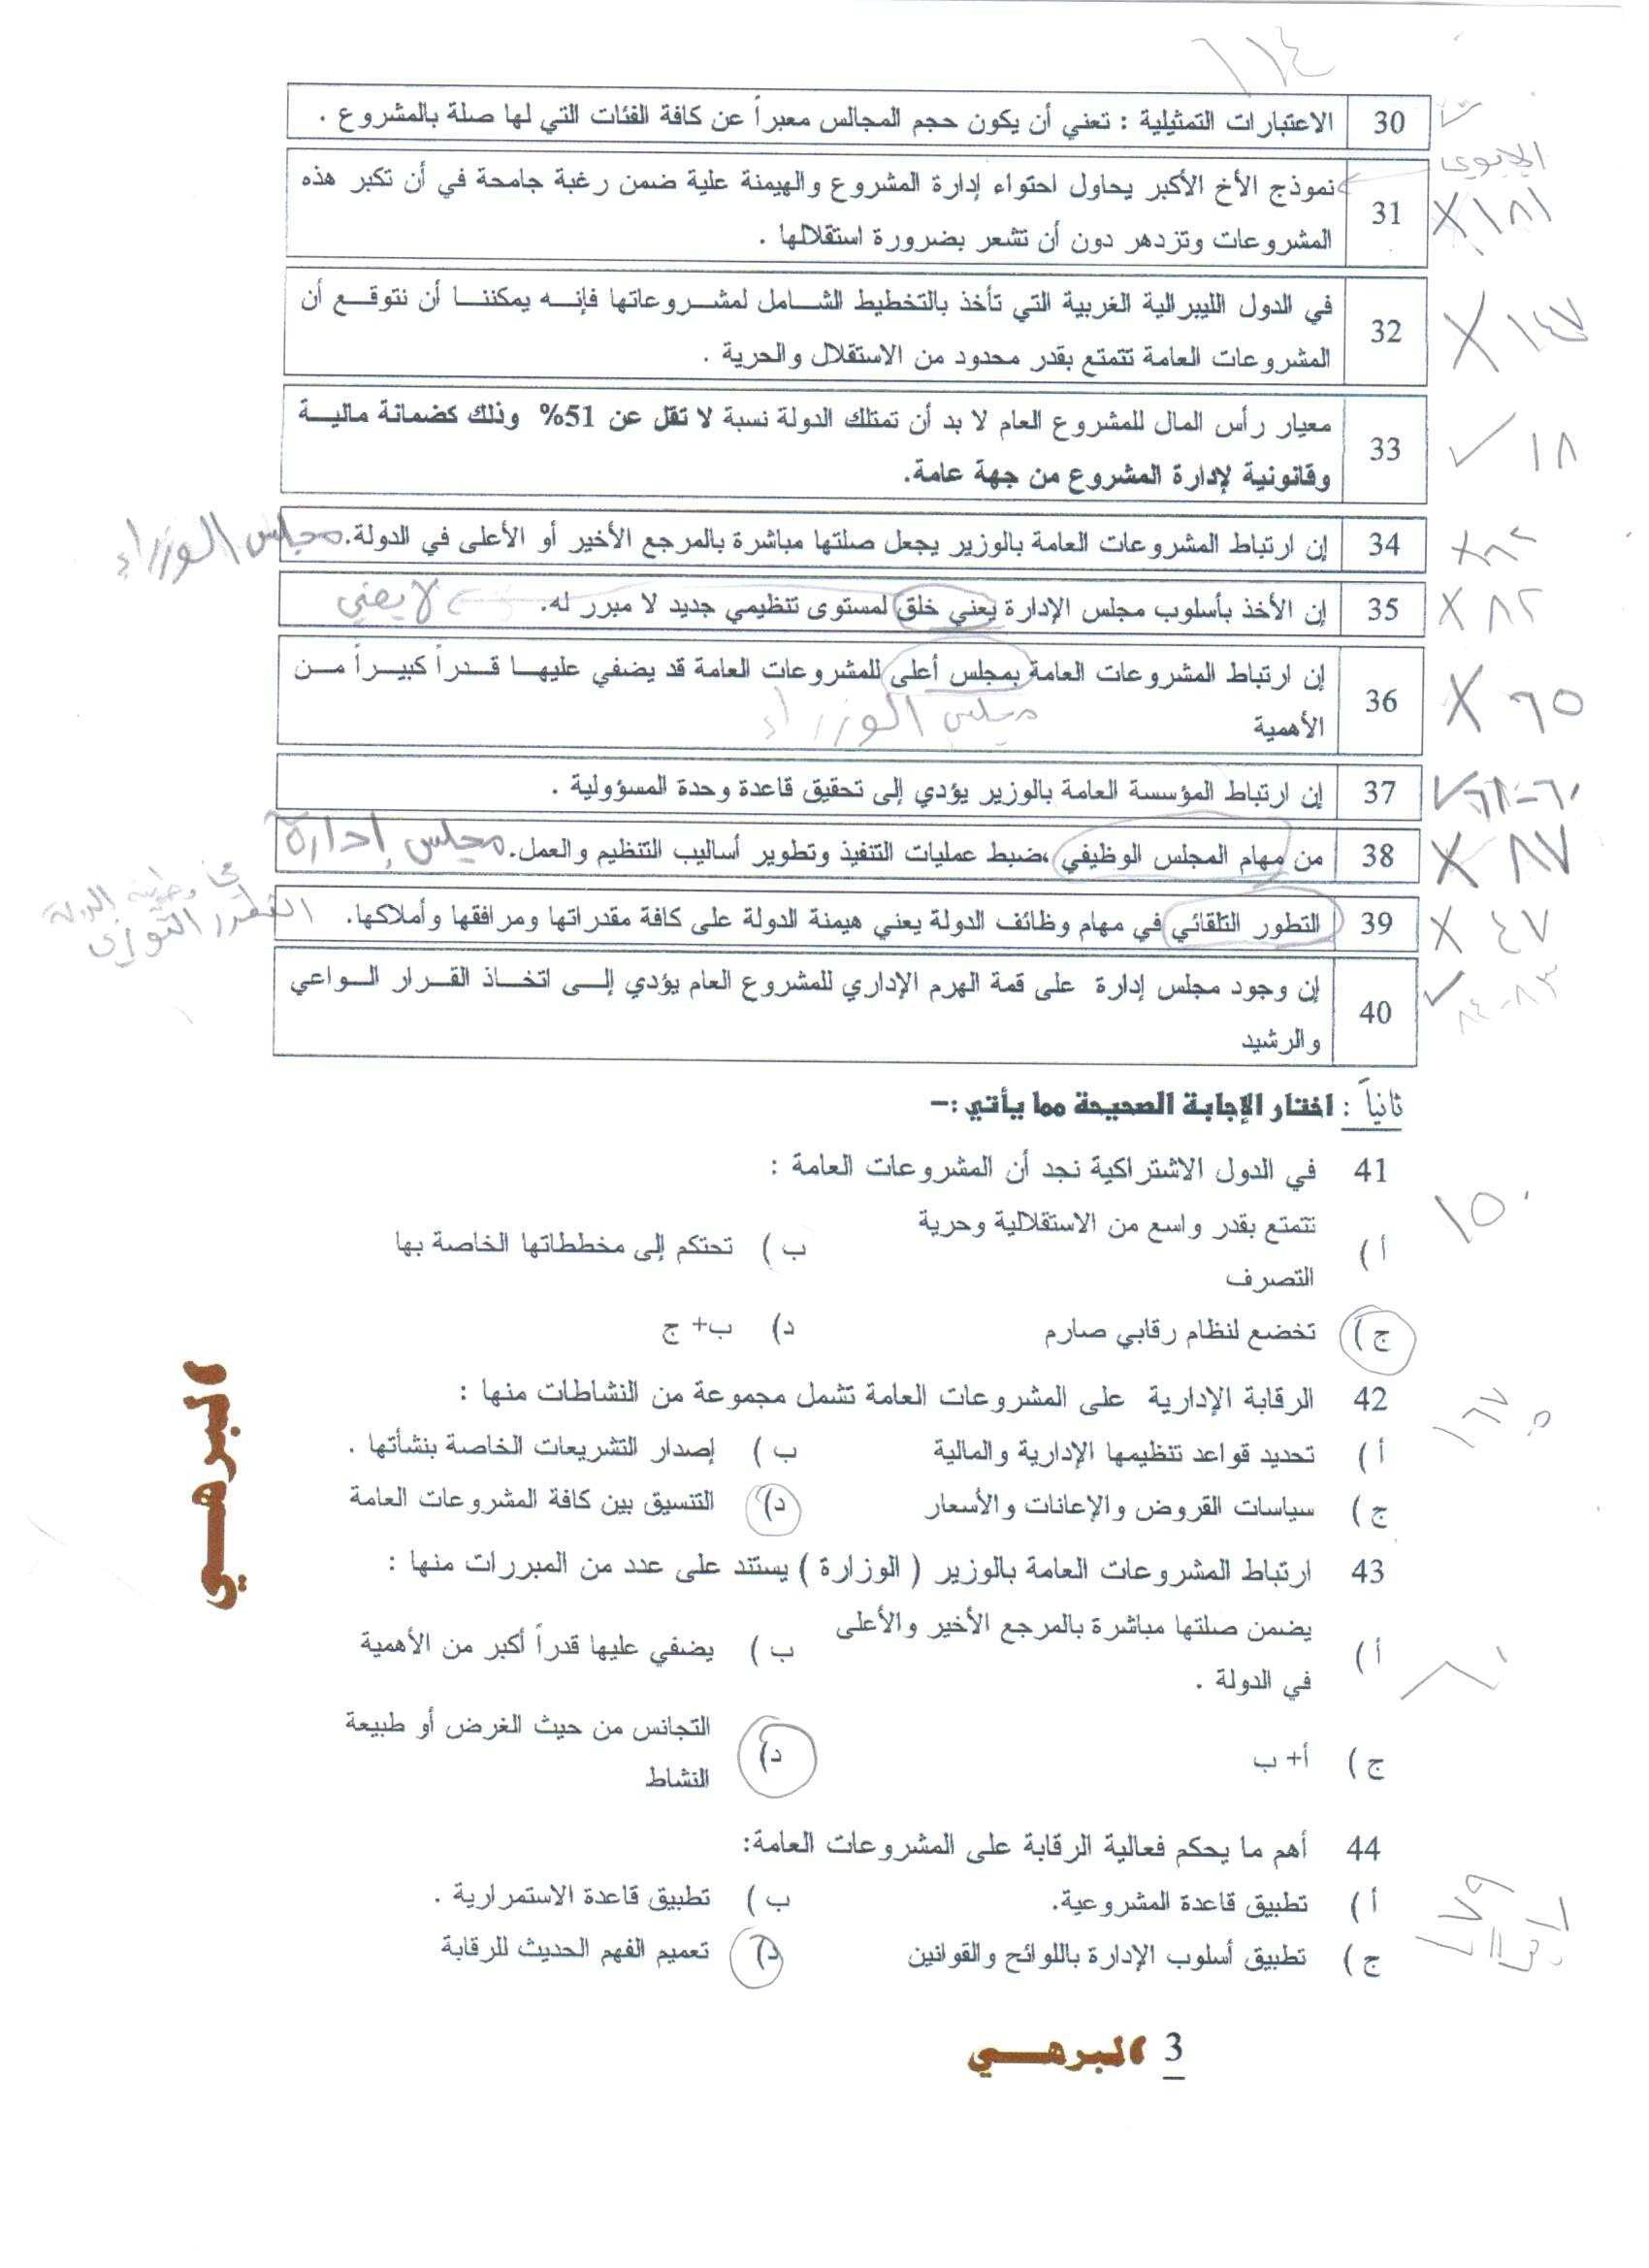 ١١٤
30 الاعتبارات التمثيلية : تعني أن يكون حجم المجالس معبراً عن كافة الفئات التي لها صلة بالمشروع .
الابوي
31 نموذج الأخ الأكبر يحاول احتواء إدارة المشروع والهيمنة علية ضمن رغبة جامحة في أن تكبر هذه
المشروعات وتزدهر دون أن تشعر بضرورة استقلالها .
X ١٨١
32 في الدول الليبرالية الغربية التي تأخذ بالتخطيط الشامل لمشروعاتها فإنه يمكننا أن نتوقع أن
المشروعات العامة تتمتع بقدر محدود من الاستقلال والحرية .
X ١٤٧
33 معيار رأس المال للمشروع العام لا بد أن تمتلك الدولة نسبة لا تقل عن 51% وذلك كضمانة مالية
وقانونية لإدارة المشروع من جهة عامة.
✓ ١٨
34 إن ارتباط المشروعات العامة بالوزير يجعل صلتها مباشرة بالمرجع الأخير أو الأعلى في الدولة. مجلس الوزراء
X ٦٢
35 إن الأخذ بأسلوب مجلس الإدارة يعني خلق لمستوى تنظيمي جديد لا مبرر له. لا يعني
X ٨٢
36 إن ارتباط المشروعات العامة بمجلس أعلى للمشروعات العامة قد يضفي عليها قدراً كبيراً من
الأهمية
مجلس الوزراء
X ٦٥
37 إن ارتباط المؤسسة العامة بالوزير يؤدي إلى تحقيق قاعدة وحدة المسؤولية .
✓ ٦١-٦٠
38 من مهام المجلس الوظيفي ،ضبط عمليات التنفيذ وتطوير أساليب التنظيم والعمل. مجلس إدارة
X ٨٧
39 التطور التلقائي في مهام وظائف الدولة يعني هيمنة الدولة على كافة مقدراتها ومرافقها وأملاكها.
X ٤٧
في وظيفة الدولة
التطور الثوري
40 إن وجود مجلس إدارة على قمة الهرم الإداري للمشروع العام يؤدي إلى اتخاذ القرار الواعي
والرشيد
✓ ٨٤-٨٣
ثانياً : اختار الإجابة الصحيحة مما يأتي :–
41 في الدول الاشتراكية نجد أن المشروعات العامة :
١٥٠
أ ) تتمتع بقدر واسع من الاستقلالية وحرية
التصرف
ب ) تحتكم إلى مخططاتها الخاصة بها
ج ) تخضع لنظام رقابي صارم
د) ب+ ج
42 الرقابة الإدارية على المشروعات العامة تشمل مجموعة من النشاطات منها :
١٦٧
أ ) تحديد قواعد تنظيمها الإدارية والمالية
ب ) إصدار التشريعات الخاصة بنشأتها .
ج ) سياسات القروض والإعانات والأسعار
د) التنسيق بين كافة المشروعات العامة
43 ارتباط المشروعات العامة بالوزير ( الوزارة ) يستند على عدد من المبررات منها :
أ ) يضمن صلتها مباشرة بالمرجع الأخير والأعلى
في الدولة .
ب ) يضفي عليها قدراً أكبر من الأهمية
٦٠
ج ) أ+ ب
د) التجانس من حيث الغرض أو طبيعة
النشاط
44 أهم ما يحكم فعالية الرقابة على المشروعات العامة:
أ ) تطبيق قاعدة المشروعية.
ب ) تطبيق قاعدة الاستمرارية .
١٧٩
ج ) تطبيق أسلوب الإدارة باللوائح والقوانين
د) تعميم الفهم الحديث للرقابة
البرهي
3 البرهي